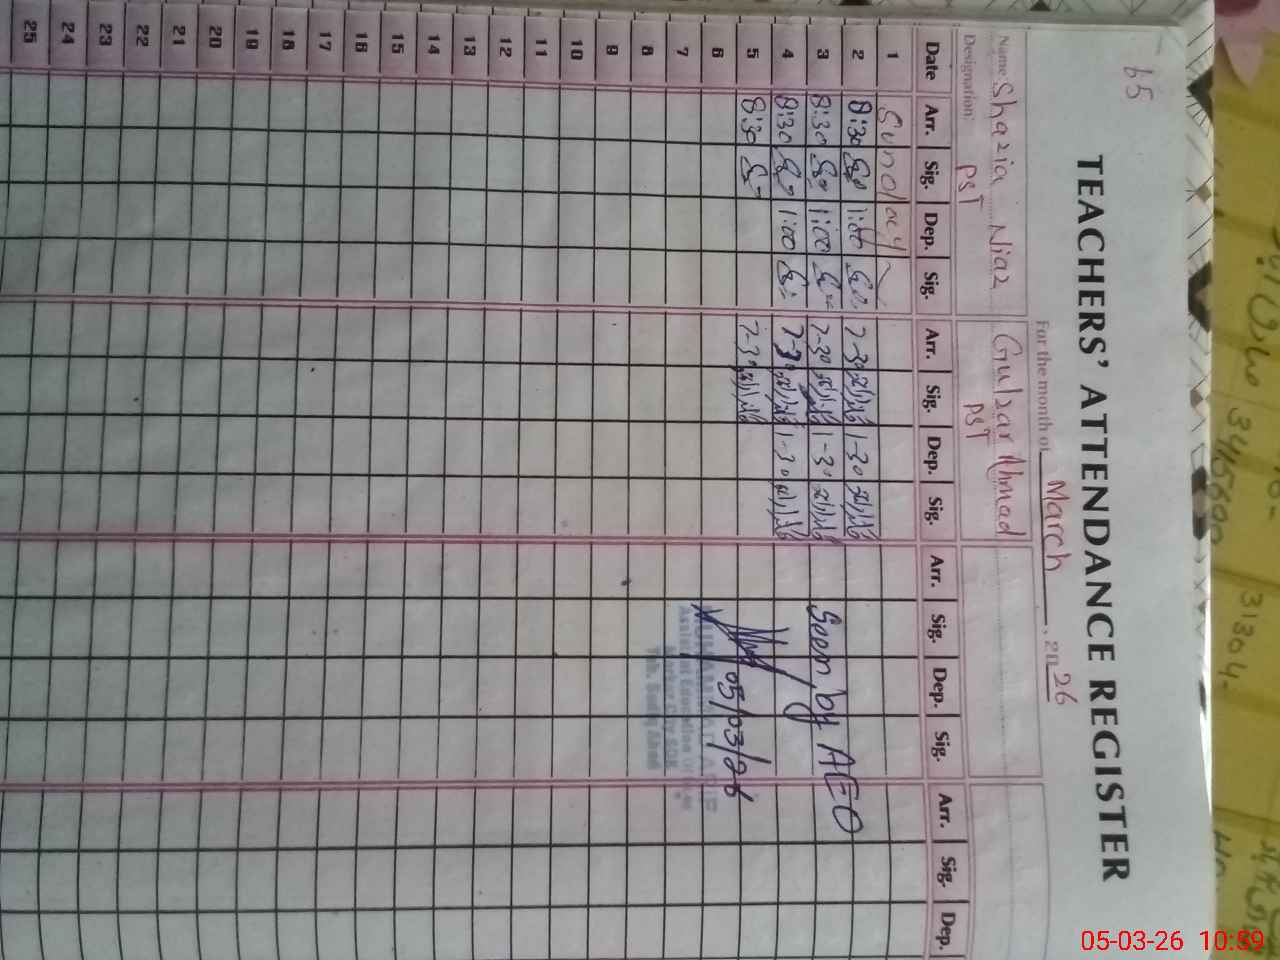 65
TEACHERS' ATTENDANCE REGISTER
For the month of March, 2026
Name: Shazia Niaz Gulzar Ahmad
Designation: PST PST
Date Arr. Sig. Dep. Sig. Arr. Sig. Dep. Sig. Arr. Sig. Dep. Sig. Arr. Sig. Dep.
1 Sunday
2 8:30 1:00 7-30 1-30
3 8:30 1:00 7-30 1-30 Seen by AEO
4 8:30 1:00 7-30 1-30
5 8:30 7-30 05/03/26
6
Assistant Education Officer
7
8
9
10
11
12
13
14
15
16
17
18
19
20
21
22
23
24
25
31304-
05-03-26 10:59